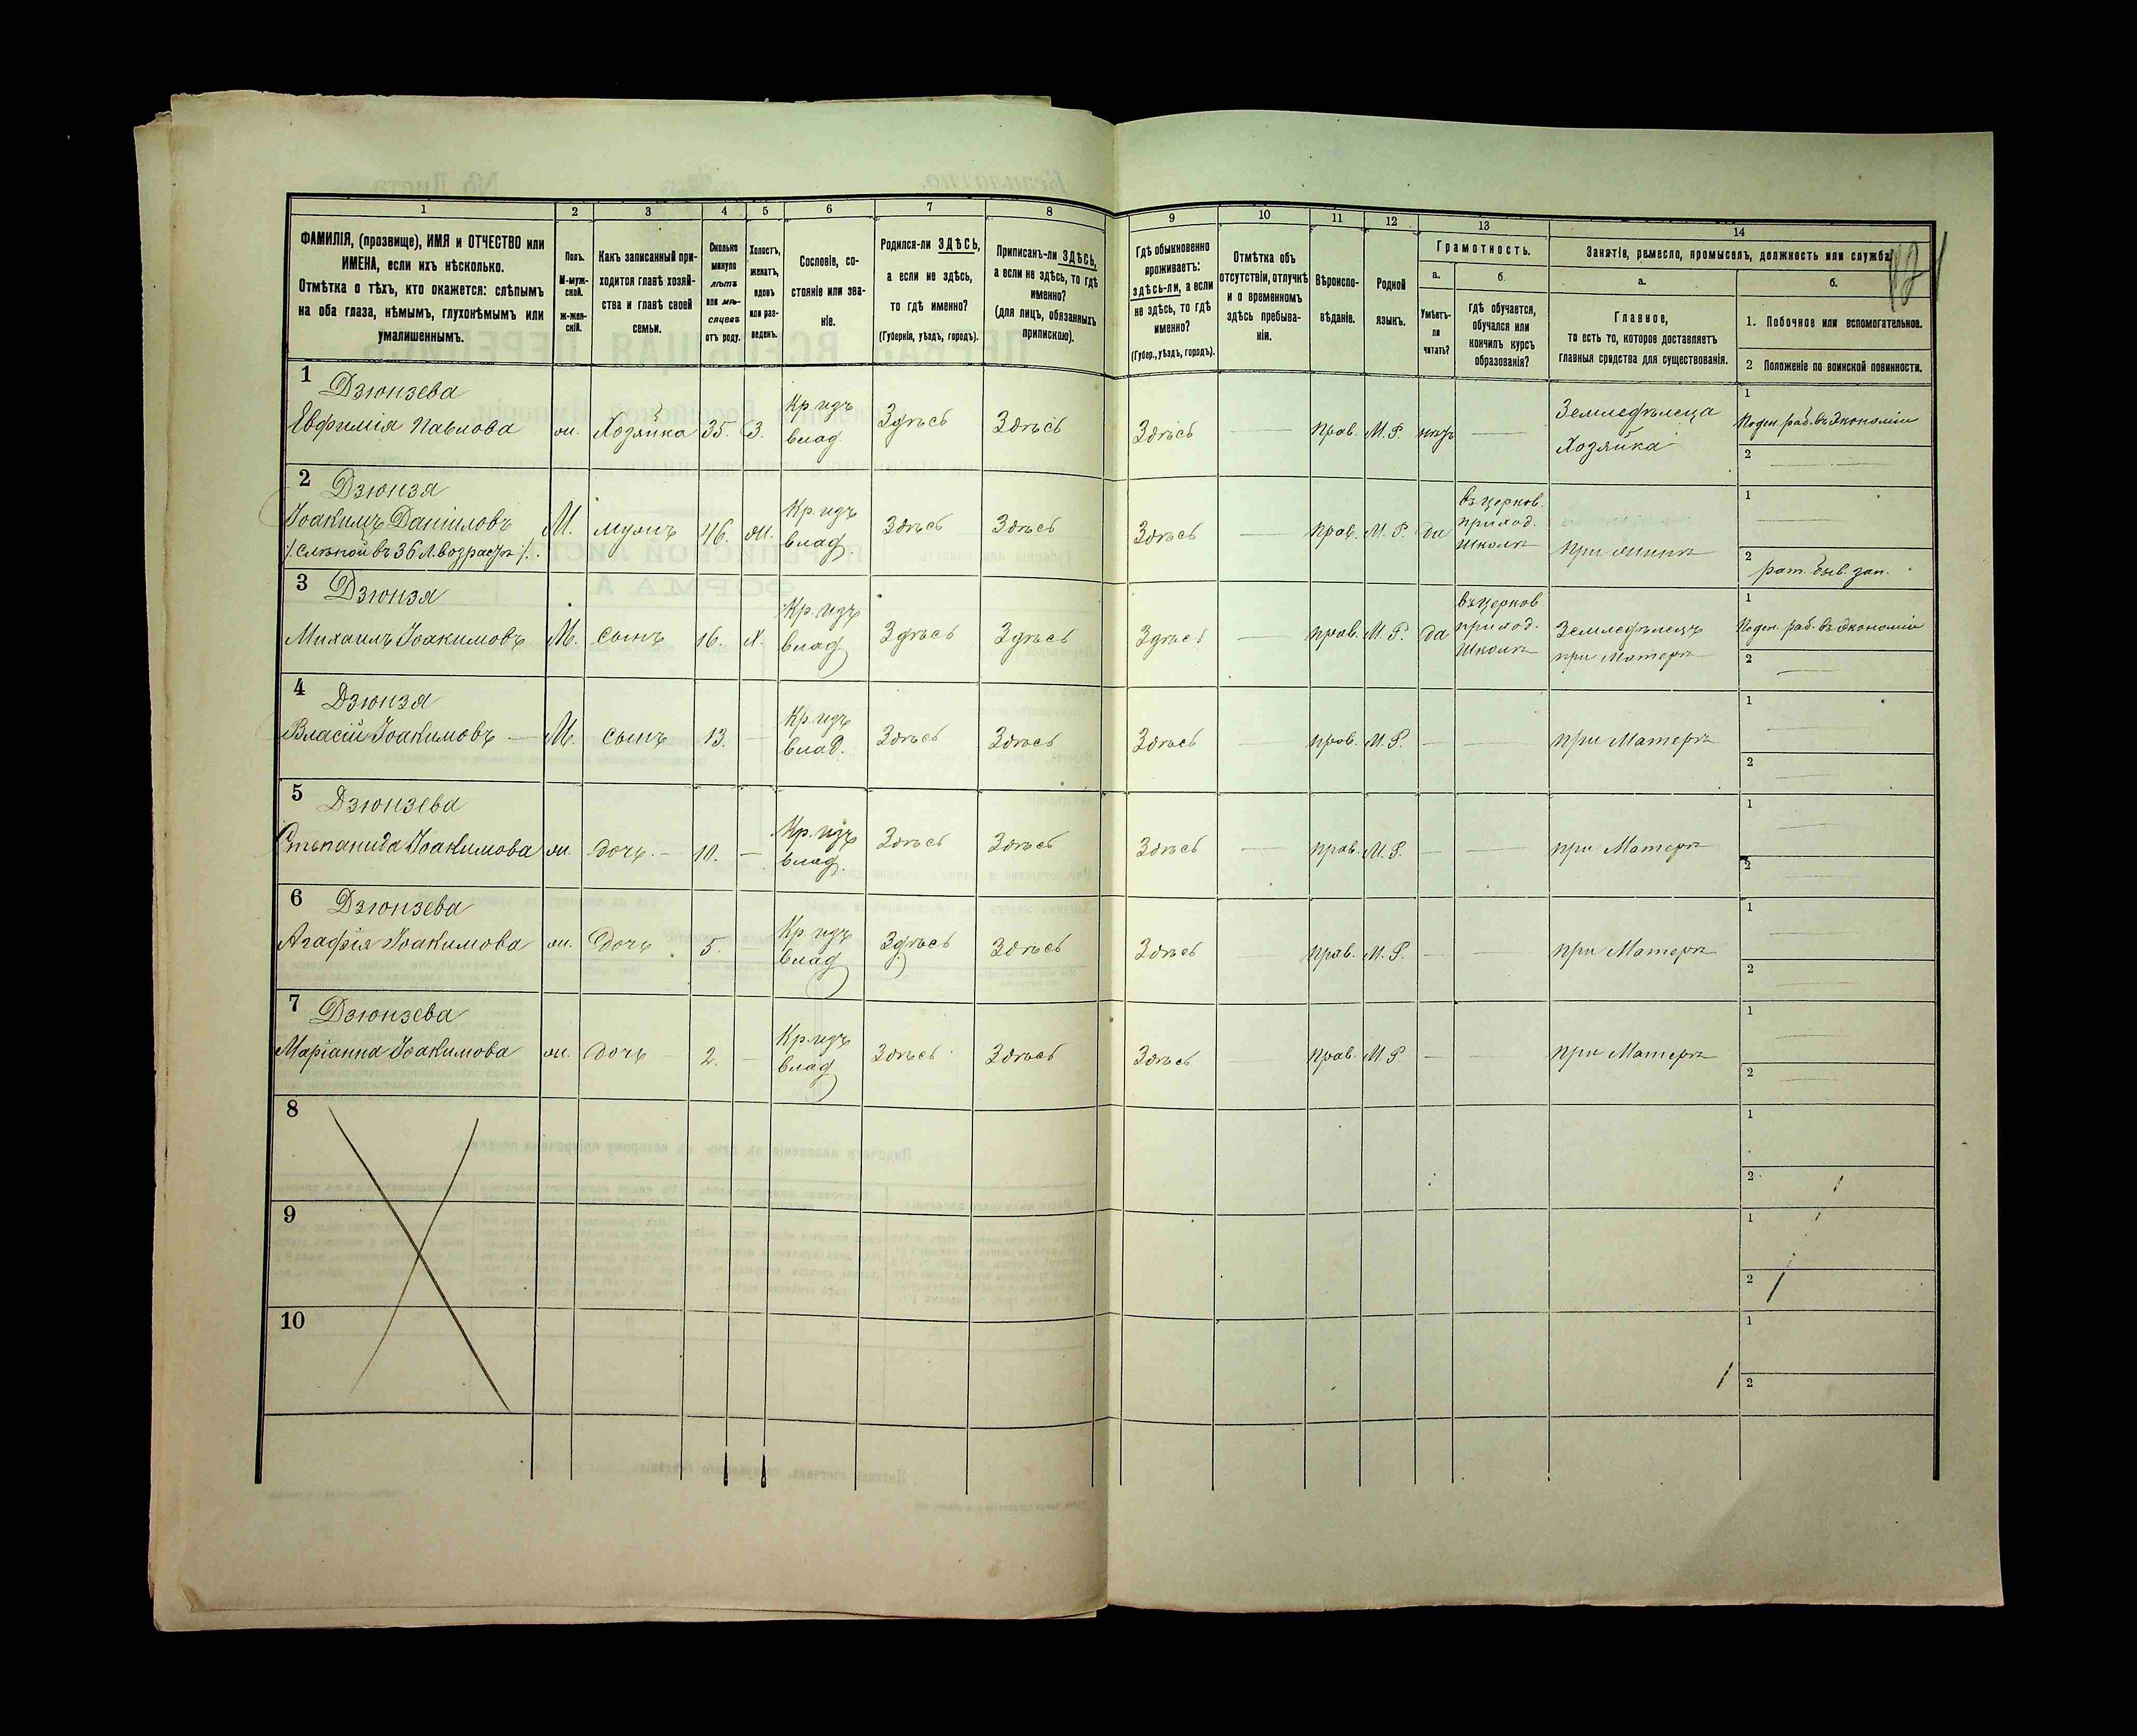 1 2 3 4 5 6 7 8 9 10 11 12 13 14
ФАМИЛІЯ, (прозвище), ИМЯ и ОТЧЕСТВО или
ИМЕНА, если ихъ нѣсколько.
Отмѣтка о тѣхъ, кто окажется: слѣпымъ
на оба глаза, нѣмымъ, глухонѣмымъ или
умалишеннымъ.
Полъ.
М-муж-
ской.
ж-жен-
скій.
Какъ записанный при-
ходится главѣ хозяй-
ства и главѣ своей
семьи.
Сколько
минуло
лѣтъ
или мѣ-
сяцевъ
отъ роду.
Холостъ,
женатъ,
вдовъ
или раз-
веденъ.
Сословіе, со-
стояніе или зва-
ніе.
Родился-ли ЗДѢСЬ,
а если не здѣсь,
то гдѣ именно?
(Губернія, уѣздъ, городъ).
Приписанъ-ли ЗДѢСЬ,
а если не здѣсь, то гдѣ
именно?
(для лицъ, обязанныхъ
припискою).
Гдѣ обыкновенно
проживаетъ:
здѣсь-ли, а если
не здѣсь, то гдѣ
именно?
(Губер., уѣздъ, городъ).
Отмѣтка объ
отсутствіи, отлучкѣ
и о временномъ
здѣсь пребыва-
ніи.
Вѣроиспо-
вѣданіе.
Родной
языкъ.
Грамотность.
а.
Умѣетъ-
ли
читать?
б.
Гдѣ обучается,
обучался или
кончилъ курсъ
образованія?
Занятія, ремесло, промыселъ, должность или служба.
а.
Главное,
то есть то, которое доставляетъ
главныя средства для существованія.
б.
1. Побочное или вспомогательное.
2 Положеніе по воинской повинности.
1 Дзюнзева
Евфимія Павлова ж. Хозяйка 35. З. Кр. изъ влад. Здѣсь Здѣсь Здѣсь — прав. М.Р. нѣтъ — Земледѣлеца Хозяйка
1 Поден. раб. въ Экономіи
2 —
2 Дзюнзя
Іоакимъ Даніиловъ М. мужъ 46. ж. Кр. изъ влад. Здѣсь Здѣсь Здѣсь — прав. М.Р. да въ церков. приход. школѣ при женѣ
/слѣпой въ 36 л. возрастѣ/.
1 —
2 рат.
3 Дзюнзя
Михаилъ Іоакимовъ М. сынъ 16. х. Кр. изъ влад. Здѣсь Здѣсь Здѣсь — прав. М.Р. да въ церков. приход. школѣ Земледѣлецъ при Матерѣ
1 Поден. раб. въ Экономіи
2 —
4 Дзюнзя
Власій Іоакимовъ — М. сынъ 13. — Кр. изъ влад. Здѣсь Здѣсь Здѣсь — прав. М.Р. — — при Матерѣ
1 —
2 —
5 Дзюнзева
Стѣпанида Іоакимова ж. дочь — 10. — Кр. изъ влад. Здѣсь Здѣсь Здѣсь — прав. М.Р. — — при Матерѣ
1 —
2 —
6 Дзюнзева
Агафія Іоакимова ж. дочь 5. — Кр. изъ влад. Здѣсь Здѣсь Здѣсь — прав. М.Р. — — при Матерѣ
1 —
2 —
7 Дзюнзева
Маріанна Іоакимова ж. дочь — 2. — Кр. изъ влад. Здѣсь Здѣсь Здѣсь — прав. М.Р. — — при Матерѣ
1 —
2 —
8
1
2
9
1
2
10
1
2